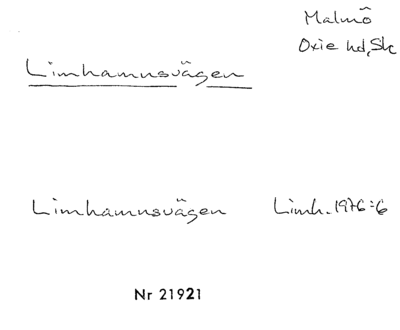 Malmö
Oxie hd, Sk
Limhamnsvägen
Limhamnsvägen Limh. 1976:6
Nr 21921